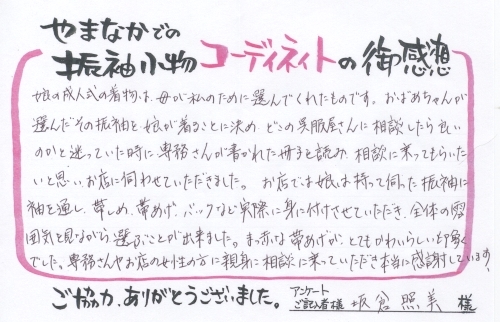 やまなかでの
振袖小物コーディネイトの御感想
娘の成人式の着物は、母が私のために選んでくれたものです。おばあちゃんが
選んだその振袖を娘が着ることに決め、どこの呉服屋さんに相談したら良い
のかと迷っていた時に、専務さんが書かれた冊子を読み、相談に来てもらいた
いと思い、お店に伺わせていただきました。お店では娘は持って伺った振袖に
袖を通し、帯じめ、帯あげ、バックなど実際に身に付けさせていただき、全体の雰
囲気を見ながら選ぶことが出来ました。まっ赤な帯あげが、とてもかわいらしい印象
でした。専務さんやお店の女性の方に親身に相談に乗っていただき本当に感謝しています。
ご協力、ありがとうございました。 アンケートご記入者様 坂倉照美 様